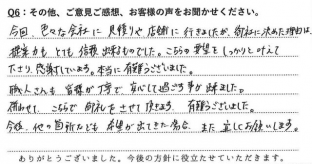 Q6：その他、ご意見ご感想、お客様の声をお聞かせください。
今回、色々な会社に見積りや店舗に行きましたが、御社に決めた理由は、
提案力もとても信頼出来るものでした。こちらの要望をしっかりと叶えて
下さり、感謝しています。本当に有難うございました。
職人さんも皆様が丁寧で、安心して過ごす事が出来ました。
併わせて、こちらで御礼をさせて頂きます。有難うございました。
今後、他の箇所なども希望が出てきた場合、また宜しくお願いします。
ありがとうございました。今後の方針に役立たせていただきます。